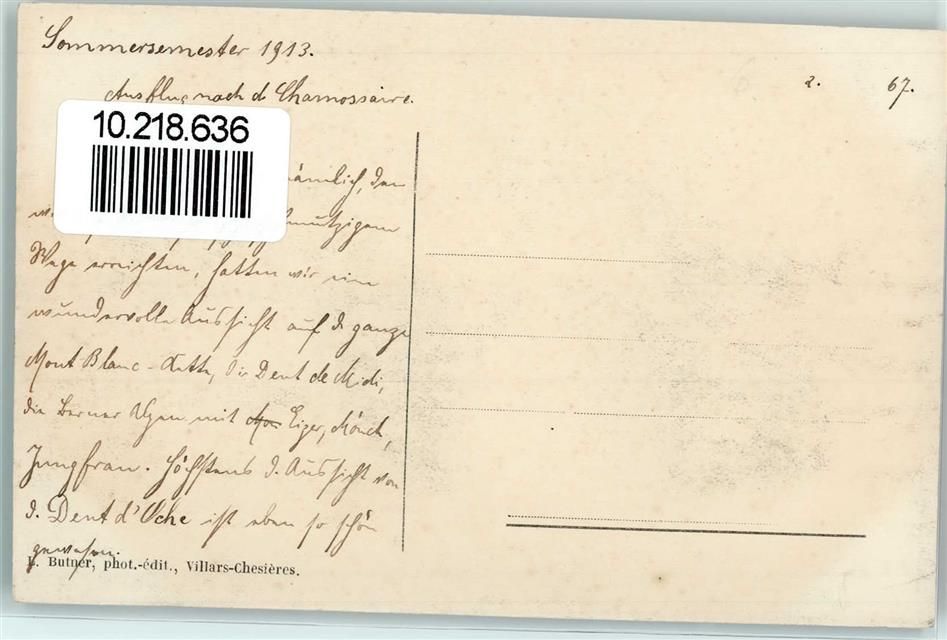 Sommersemester 1913.
2. 67.
Ausflug nach d. Chamossaire.
10.218.636
den
schmutzigem
Wege erreichten, hatten wir eine
wundervolle Aussicht auf d. ganze
Mont Blanc-Kette, die Dent de Midi,
die Berner Alpen mit Eiger, Mönch,
Jungfrau. Höchstens d. Aussicht von
d. Dent d'Oche ist eben so schön
gewesen.
E. Butner, phot.-édit., Villars-Chesières.